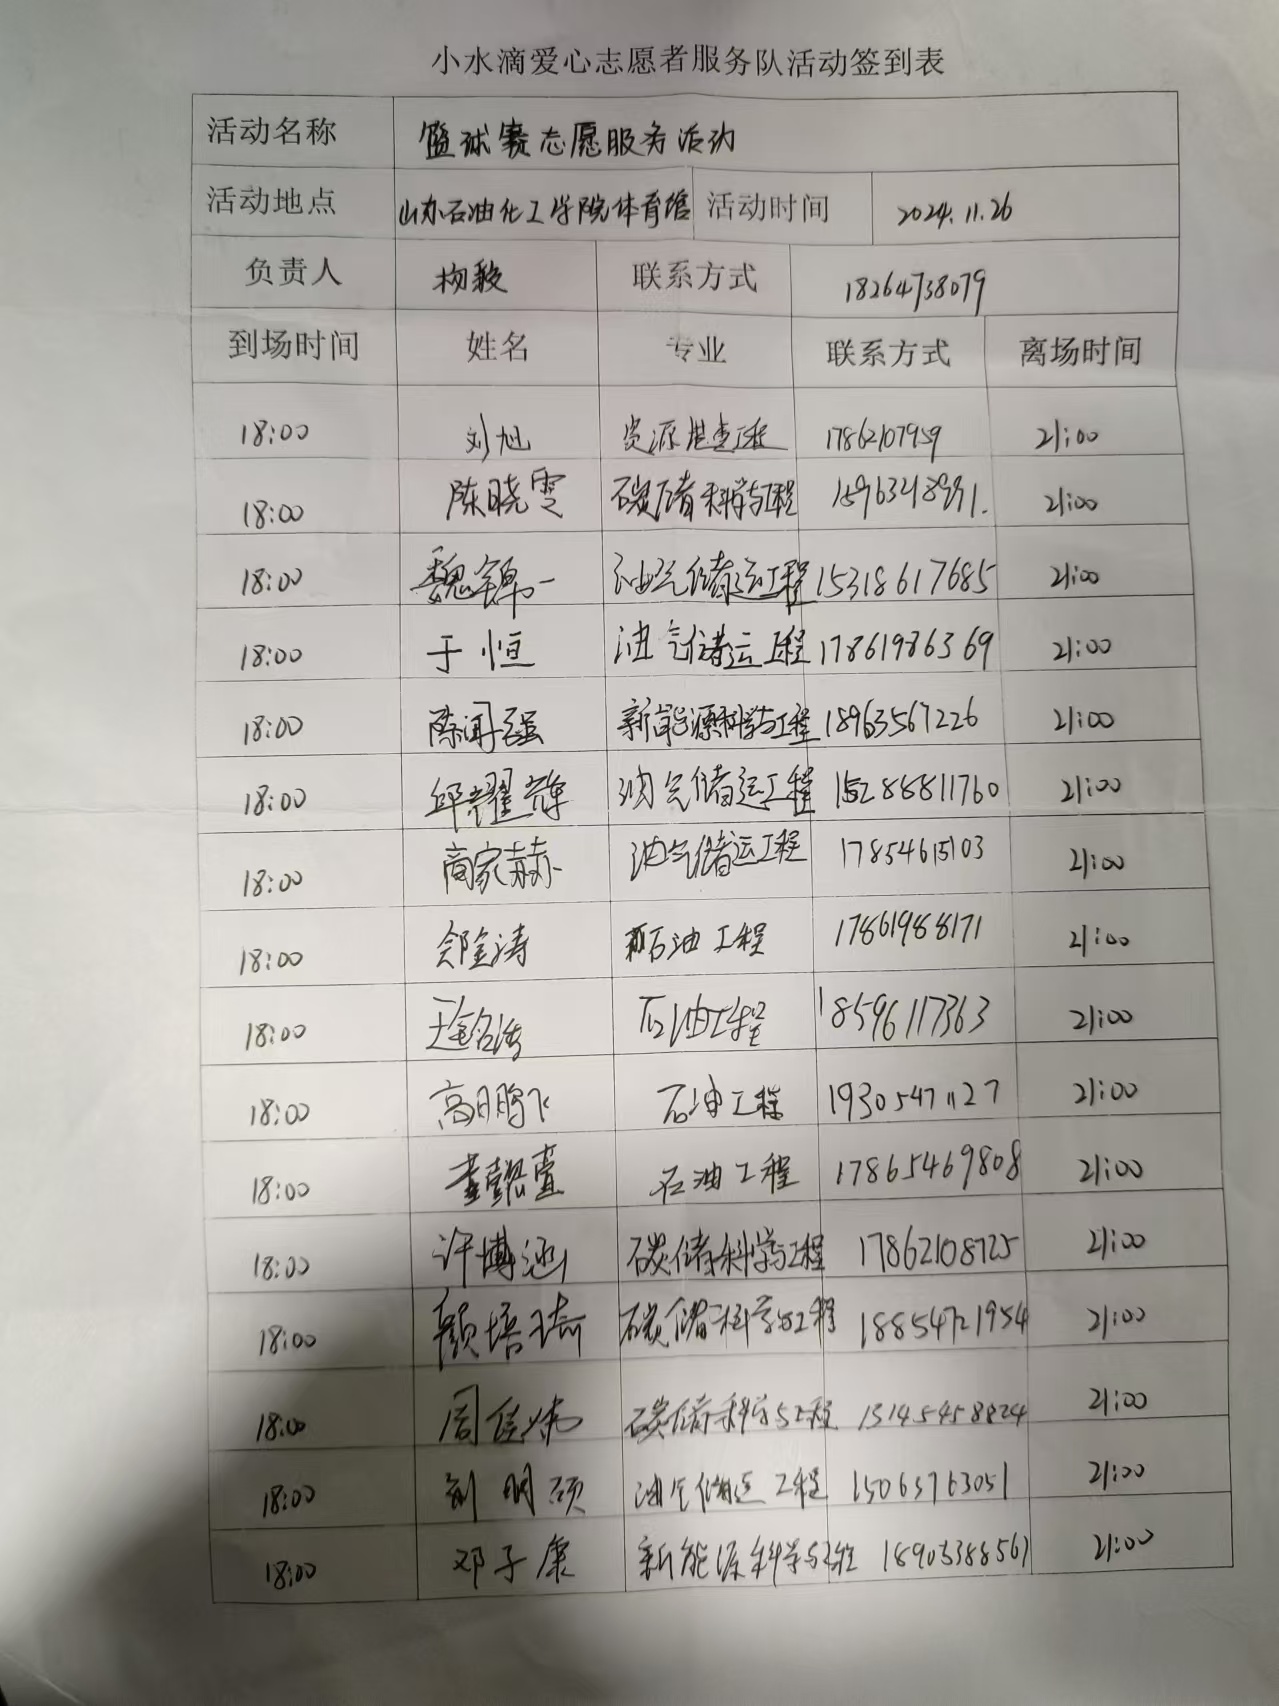 小水滴爱心志愿者服务队活动签到表
活动名称 篮球赛志愿服务活动
活动地点 山东石油化工学院体育馆 活动时间 2024.11.26
负责人 杨毅 联系方式 18264738079
到场时间 姓名 专业 联系方式 离场时间
18:00 刘旭 资源勘查工程 17862107959 21:00
18:00 陈晓雯 碳储科学与工程 21:00
18:00 魏锦一 油气储运工程 15318617685 21:00
18:00 于恒 油气储运工程 17861986369 21:00
18:00 陈闻强 新能源科学与工程 18963567226 21:00
18:00 邱耀辉 油气储运工程 15288811760 21:00
18:00 商家赫 油气储运工程 17854615103 21:00
18:00 郐金涛 石油工程 17861988171 21:00
18:00 石油工程 18596117363 21:00
18:00 高鹏飞 石油工程 19305471127 21:00
18:00 董懿萱 石油工程 17865469808 21:00
18:00 许博涵 碳储科学与工程 17862108725 21:00
18:00 顾培琦 碳储科学与工程 18854721954 21:00
18:00 周佳炜 碳储科学与工程 15145458824 21:00
18:00 刘明硕 油气储运工程 15065763051 21:00
18:00 邓子康 新能源科学与工程 18905388567 21:00